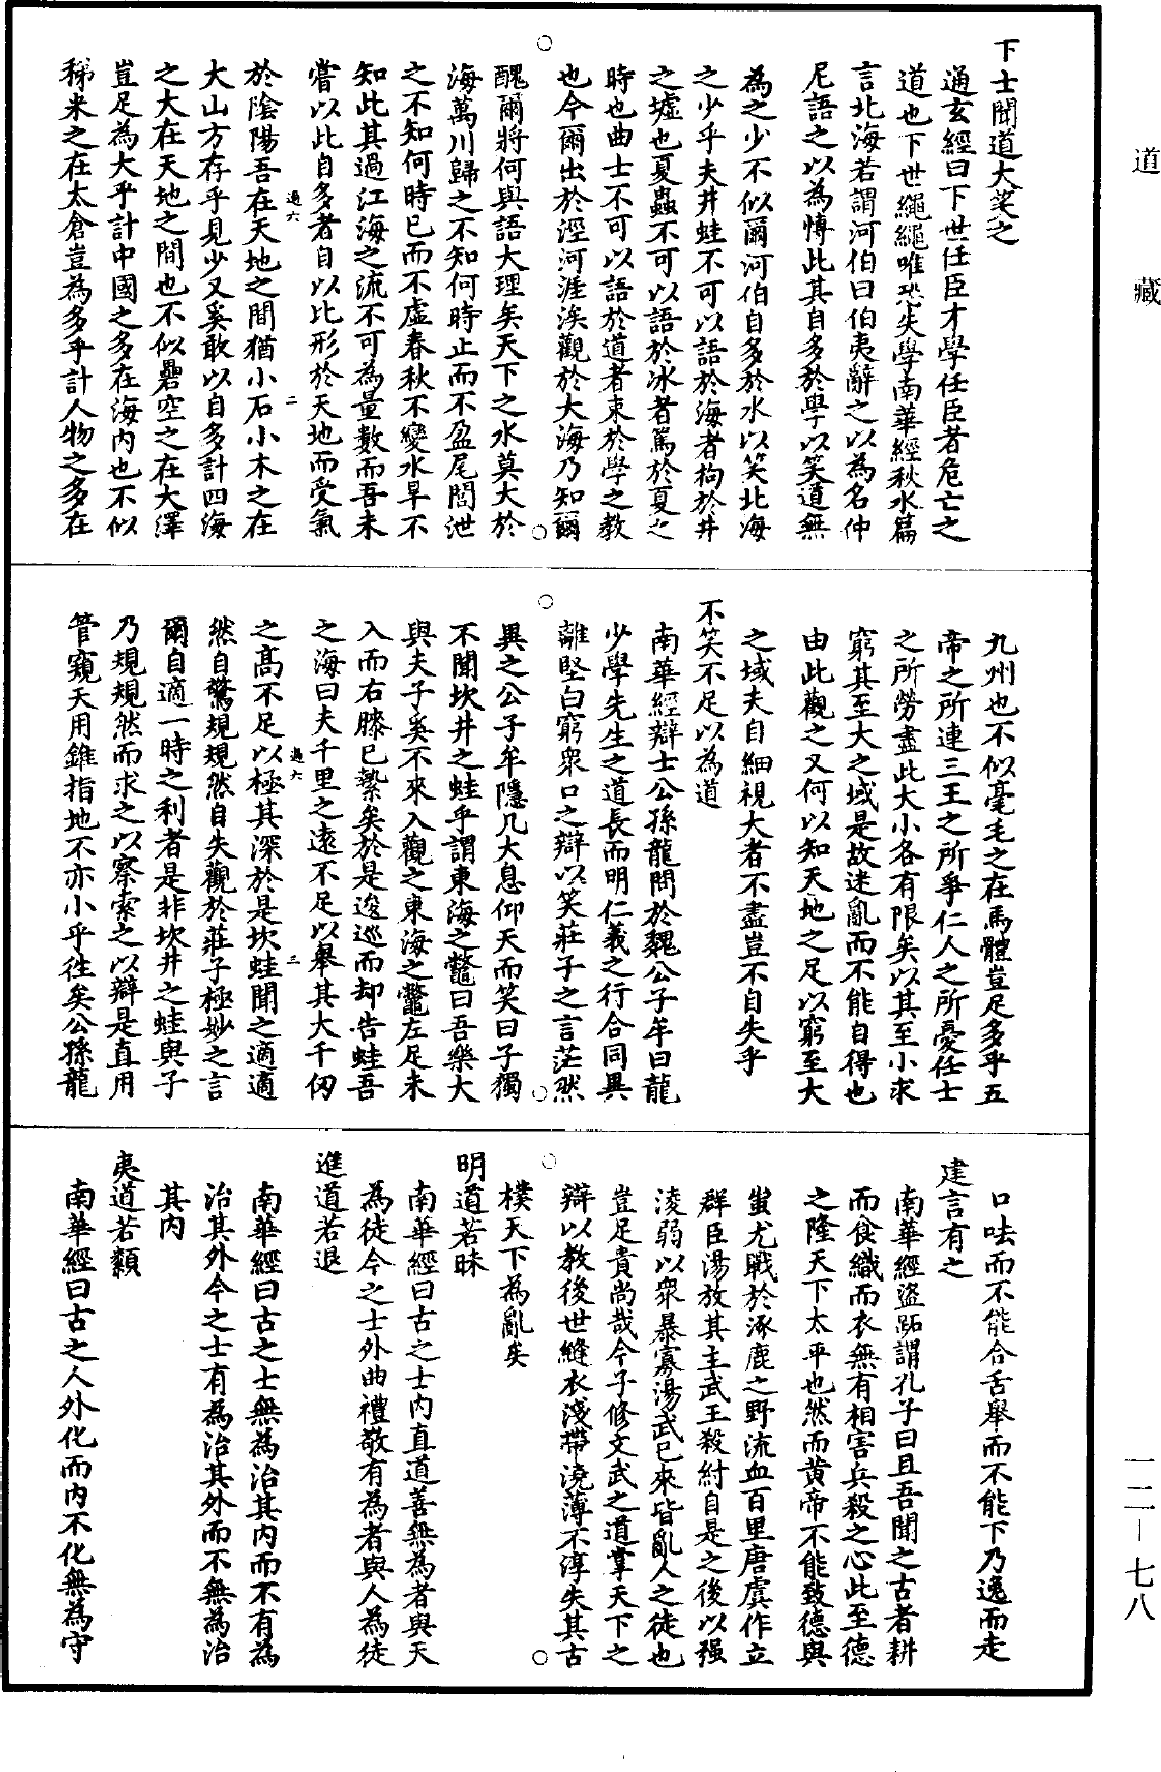 道藏
下士聞道大笑之
通玄經曰下世任臣才學任臣者危亡之
道也下世繩繩唯恐失學南華經秋水篇
言北海若謂河伯曰伯夷辭之以為名仲
尼語之以為博此其自多於學以笑道無
為之少不似爾河伯自多於水以笑北海
之少乎夫井蛙不可以語於海者拘於井
之墟也夏蟲不可以語於冰者篤於夏之
時也曲士不可以語於道者束於學之教
也今爾出於涇河涯涘觀於大海乃知爾
醜爾將何與語大理矣天下之水莫大於
海萬川歸之不知何時止而不盈尾閭泄
之不知何時已而不虛春秋不變水旱不
知此其過江海之流不可為量數而吾未
嘗以此自多者自以比形於天地而受氣
過六 二
於陰陽吾在天地之間猶小石小木之在
大山方存乎見少又奚敢以自多計四海
之大在天地之間也不似礨空之在大澤
豈足為大乎計中國之多在海內也不似
稊米之在太倉豈為多乎計人物之多在
九州也不似毫毛之在馬體豈足多乎五
帝之所連三王之所爭仁人之所憂任士
之所勞盡此大小各有限矣以其至小求
窮其至大之域是故迷亂而不能自得也
由此觀之又何以知天地之足以窮至大
之域夫自細視大者不盡豈不自失乎
不笑不足以為道
南華經辯士公孫龍問於魏公子牟曰龍
少學先生之道長而明仁義之行合同異
離堅白窮衆口之辯以笑莊子之言茫然
異之公子牟隱几大息仰天而笑曰子獨
不聞坎井之蛙乎謂東海之鼈曰吾樂大
與夫子奚不來入觀之東海之鼈左足未
入而右膝已縶矣於是逡巡而却告蛙吾
之海曰夫千里之遠不足以舉其大千仞
過六 三
之高不足以極其深於是坎蛙聞之適適
然自驚規規然自失觀於莊子極妙之言
爾自適一時之利者是非坎井之蛙與子
乃規規然而求之以察索之以辯是直用
管窺天用錐指地不亦小乎往矣公孫龍
口呿而不能合舌舉而不能下乃逸而走
建言有之
南華經盜跖謂孔子曰且吾聞之古者耕
而食織而衣無有相害兵殺之心此至德
之隆天下太平也然而黃帝不能致德與
蚩尤戰於涿鹿之野流血百里唐虞作立
群臣湯放其主武王殺紂自是之後以强
淩弱以衆暴寡湯武已來皆亂人之徒也
豈足貴尚哉今子修文武之道掌天下之
辯以教後世縫衣淺帶澆薄不淳失其古
樸天下為亂矣
明道若昧
南華經曰古之士內直道善無為者與天
為徒今之士外曲禮敬有為者與人為徒
進道若退
南華經曰古之士無為治其內而不有為
治其外今之士有為治其外而不無為治
其內
夷道若纇
南華經曰古之人外化而內不化無為守
一二—七八